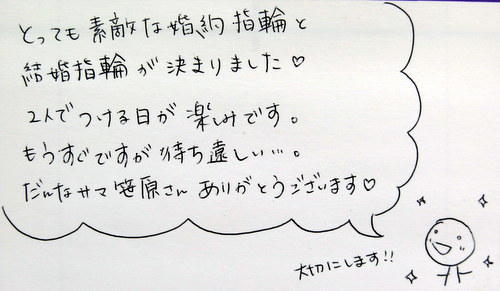 とっても素敵な婚約指輪と
結婚指輪が決まりました♡
2人でつける日が楽しみです。
もうすぐですが待ち遠しい…。
だんなサマ笹原さんありがとうございます♡
大切にします!!